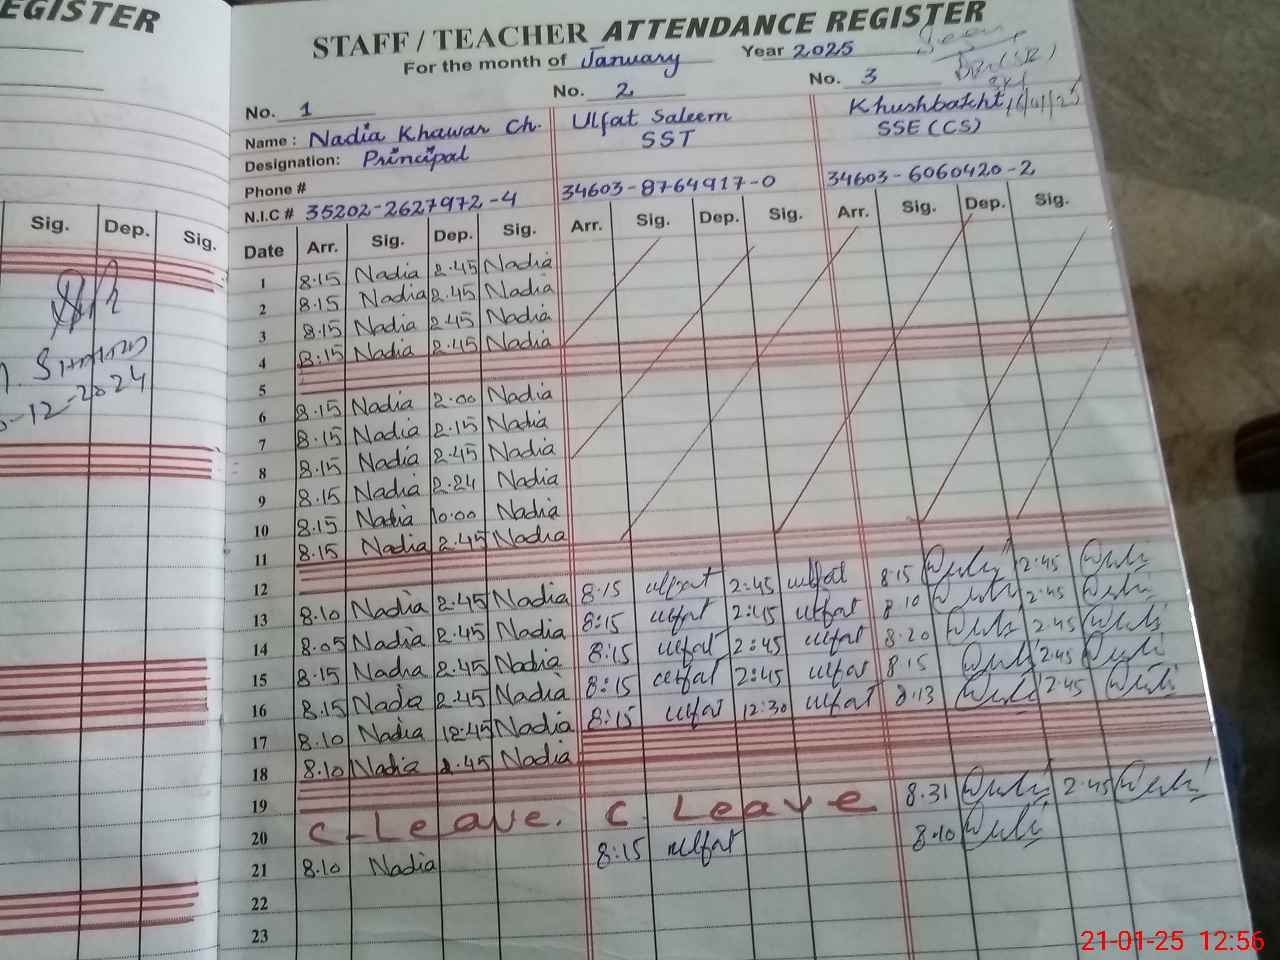 EGISTER
STAFF / TEACHER ATTENDANCE REGISTER
For the month of January Year 2025
No. 1 No. 2 No. 3
Name : Nadia Khawar Ch. Ulfat Saleem Khushbakht
Designation: Principal SST SSE (CS)
Phone #
N.I.C # 35202-2627972-4 34603-8764917-0 34603-6060420-2
Sig. Dep. Sig.
Date Arr. Sig. Dep. Sig. Arr. Sig. Dep. Sig. Arr. Sig. Dep. Sig.
1 8.15 Nadia 2.45 Nadia
2 8.15 Nadia 2.45 Nadia
3 8.15 Nadia 2.45 Nadia
4 8.15 Nadia 2.45 Nadia
5
6 8.15 Nadia 2.00 Nadia
7 8.15 Nadia 2.15 Nadia
8 8.15 Nadia 2.45 Nadia
9 8.15 Nadia 2.24 Nadia
10 8.15 Nadia 10.00 Nadia
11 8.15 Nadia 2.45 Nadia
12
13 8.10 Nadia 2.45 Nadia 8:15 ulfat 2:45 ulfat 8.15 2.45
14 8.05 Nadia 2.45 Nadia 8:15 ulfat 2:45 ulfat 8.10 2.45
15 8.15 Nadia 2.45 Nadia 8:15 ulfat 2:45 ulfat 8.20 2.45
16 8.15 Nadia 2.45 Nadia 8:15 ulfat 2:45 ulfat 8.15 2.45
17 8.10 Nadia 12.45 Nadia 8:15 ulfat 12:30 ulfat 8.13 2.45
18 8.10 Nadia 2.45 Nadia
19
20 C-Leave. C Leave 8.31 2.45
21 8.10 Nadia 8:15 ulfat 8.10
22
23
-12-2024
21-01-25 12:56